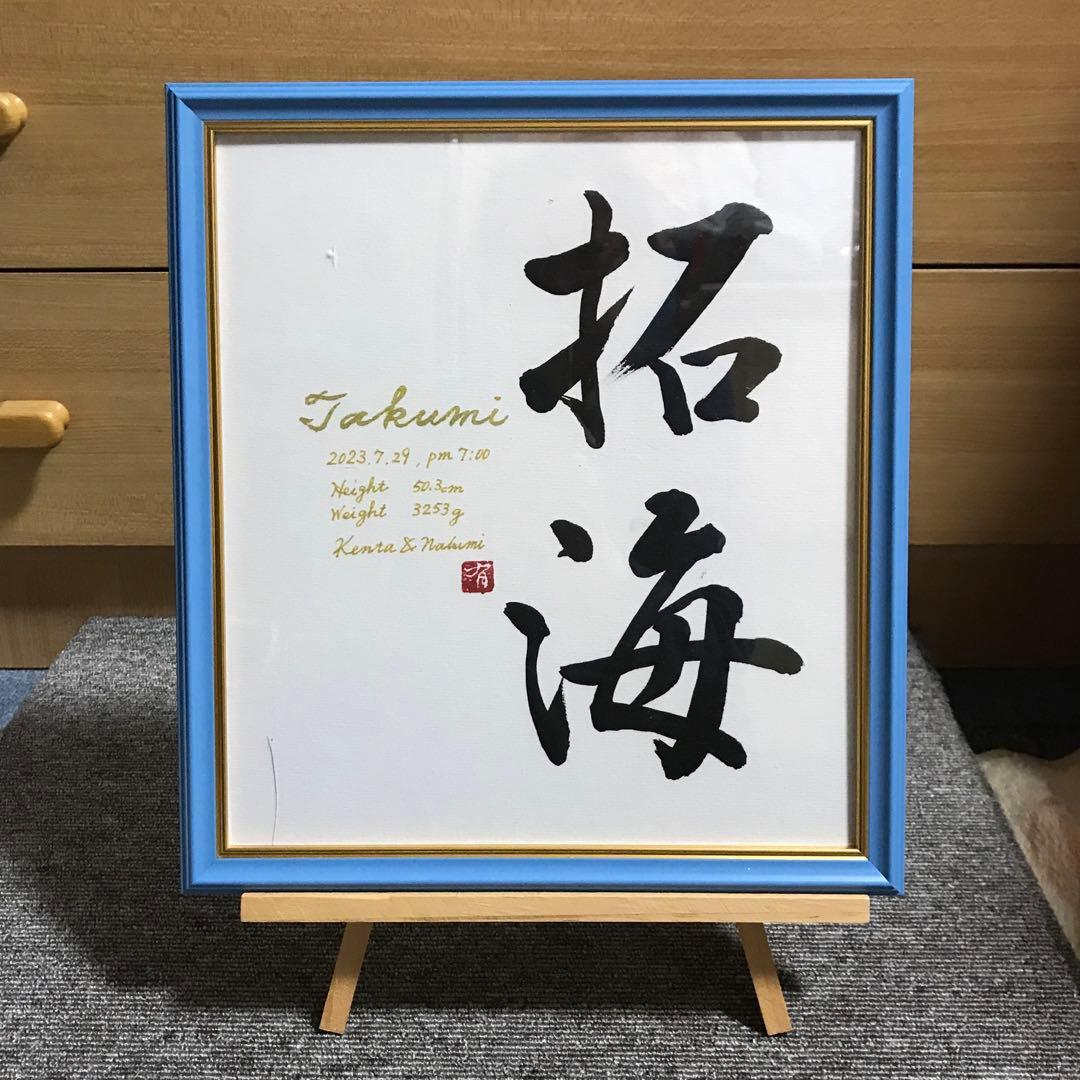 拓海
Takumi
2023.7.29, pm 7:00
Height 50.3cm
Weight 3253g
Kenta & Natumi